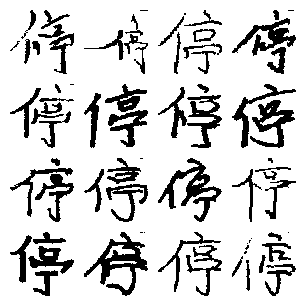 停停停停
停停停停
停停停停
停停停停